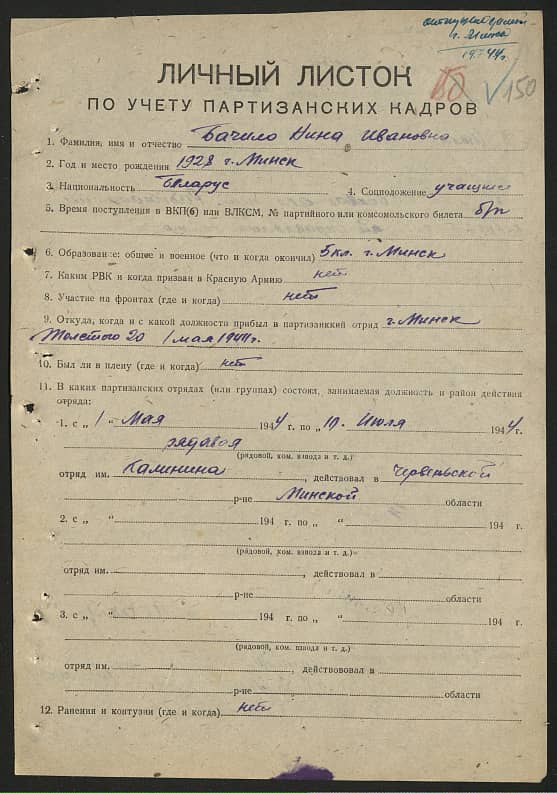 г. Минск
1944г.
50 150
ЛИЧНЫЙ ЛИСТОК
ПО УЧЕТУ ПАРТИЗАНСКИХ КАДРОВ
1. Фамилия, имя и отчество Бачило Нина Ивановна
2. Год и место рождения 1928 г. Минск
3. Национальность беларус 4. Соцположение учащийся
5. Время поступления в ВКП(б) или ВЛКСМ, № партийного или комсомольского билета б/п
6. Образование: общее и военное (что и когда окончил) 5 кл. г. Минск
7. Каким РВК и когда призван в Красную Армию нет
8. Участие на фронтах (где и когда) нет
9. Откуда, когда и с какой должности прибыл в партизанкий отряд г. Минск
Толстого 20 1 мая 1944г.
10. Был ли в плену (где и когда) нет
11. В каких партизанских отрядах (или группах) состоял, занимаемая должность и район действия
отряда:
1. с „ 1 “ Мая 1944 г. по „ 10. Июля 1944 г.
рядовая
(рядовой, ком. взвода и т. д.)
отряд им. Калинина, действовал в Червеньской
р-не Минской области
2. с „ “ 194 г. по „ “ 194 г.
(рядовой, ком. взвода и т. д.)
отряд им. , действовал в
р-не области
3. с „ “ 194 г. по „ “ 194 г.
(рядовой, ком. взвода и т. д.)
отряд им. , действововал в
р-не области
12. Ранения и контузии (где и когда) нет